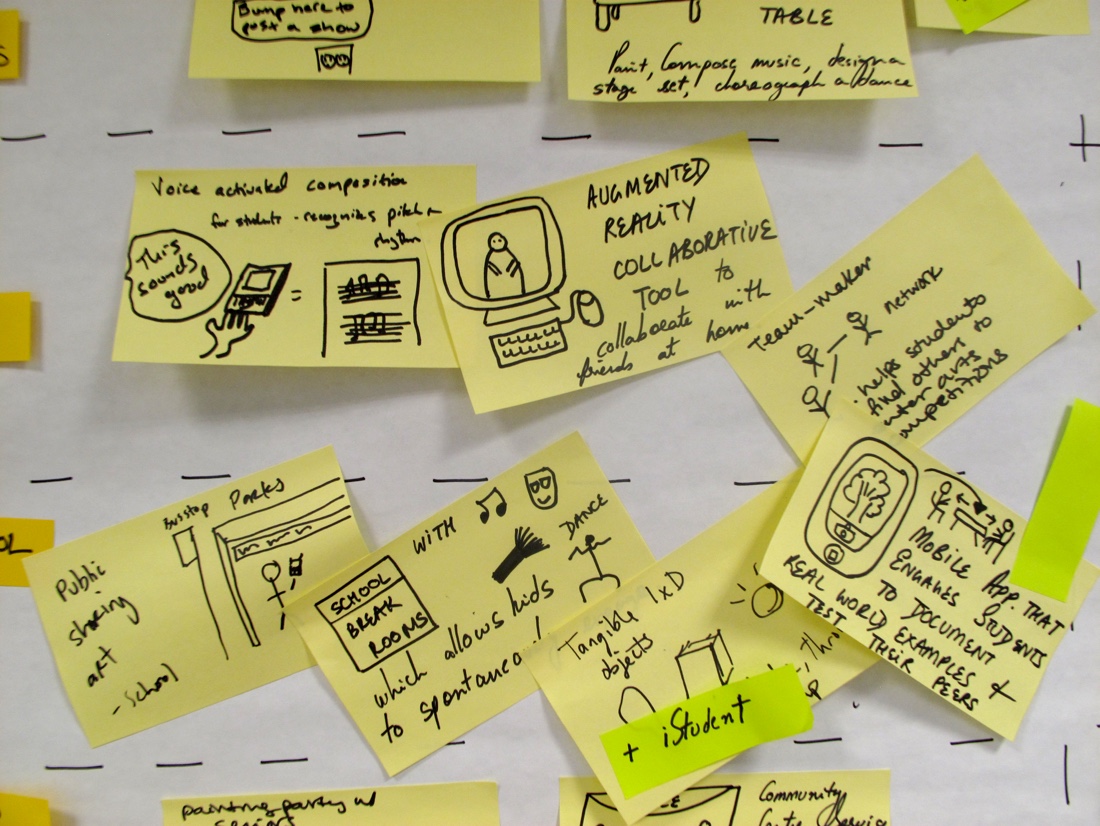 Bump here to
post a show
TABLE
Paint, Compose music, design a
stage set, choreograph a dance
S
Voice activated composition
for students - recognizes pitch
rhythm
This
sounds
good
=
AUGMENTED
REALITY
COLLABORATIVE
TOOL to
collaborate with
friends at home
Team-maker
network
. helps students
find others to
enter arts
competitions
OL
Busstop Parks
Public
sharing
art
- School
SCHOOL
BREAK
ROOMS
WITH
DANCE
which allows kids
to spontanea
Tangible IxD
objects
thro
+ iStudent
MOBILE APP. THAT
ENGAGES STUDENTS
TO DOCUMENT
REAL WORLD EXAMPLES &
TEST THEIR PEERS
painting party w/
Community